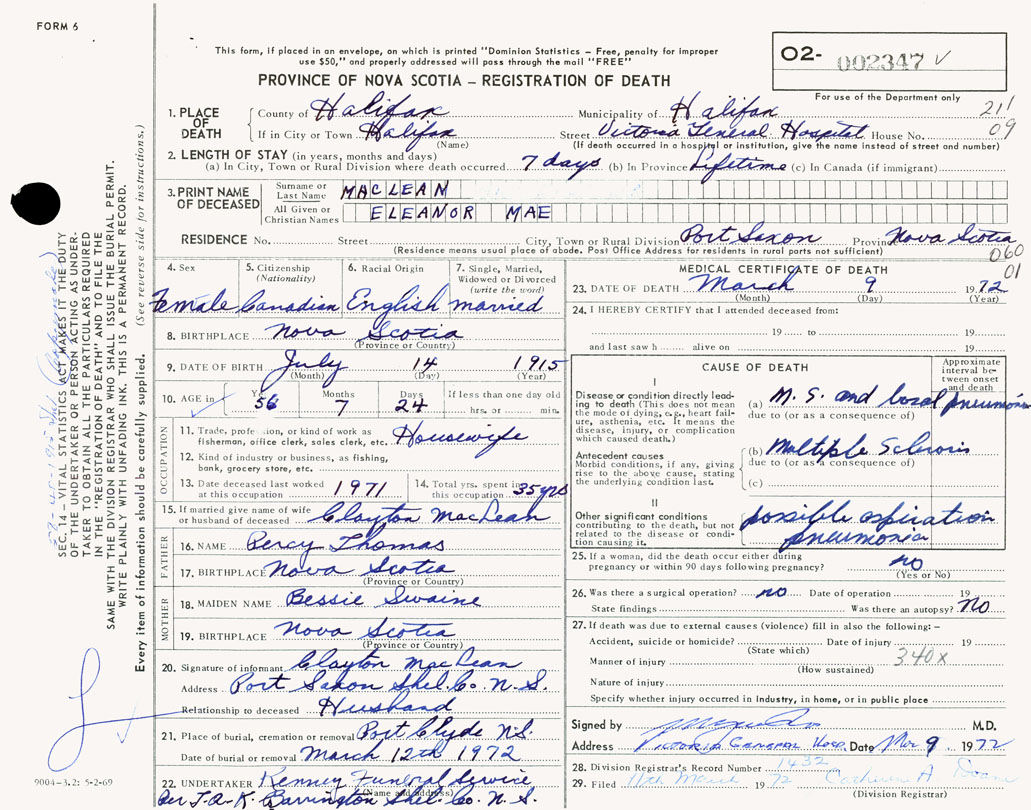 FORM 6
This form, if placed in an envelope, on which is printed "Dominion Statistics – Free, penalty for improper
use $50," and properly addressed will pass through the mail "FREE"
PROVINCE OF NOVA SCOTIA – REGISTRATION OF DEATH
O2- 002347 ✓
For use of the Department only
211
09
1. PLACE OF DEATH
County of Halifax Municipality of Halifax
If in City or Town Halifax Street Victoria General Hospital House No.
(Name) (If death occurred in a hospital or institution, give the name instead of street and number)
2. LENGTH OF STAY (in years, months and days)
(a) In City, Town or Rural Division where death occurred 7 days (b) In Province Lifetime (c) In Canada (if immigrant)
3. PRINT NAME OF DECEASED
Surname or Last Name MACLEAN
All Given or Christian Names ELEANOR MAE
RESIDENCE No. Street City, Town or Rural Division Port Saxon Province Nova Scotia
(Residence means usual place of abode. Post Office Address for residents in rural parts not sufficient)
060
01
4. Sex 5. Citizenship (Nationality) 6. Racial Origin 7. Single, Married, Widowed or Divorced (write the word)
Female Canadian English married
8. BIRTHPLACE Nova Scotia
(Province or Country)
9. DATE OF BIRTH July 14 1915
(Month) (Day) (Year)
10. AGE in Years Months Days If less than one day old
56 7 24 hrs. or min.
OCCUPATION
11. Trade, profession, or kind of work as Housewife
fisherman, office clerk, sales clerk, etc.
12. Kind of industry or business, as fishing,
bank, grocery store, etc.
13. Date deceased last worked at this occupation 1971
14. Total yrs. spent in this occupation 35 yrs
15. If married give name of wife or husband of deceased Clayton MacLean
FATHER
16. NAME Percy Thomas
17. BIRTHPLACE Nova Scotia
(Province or Country)
MOTHER
18. MAIDEN NAME Bessie Swaine
19. BIRTHPLACE Nova Scotia
(Province or Country)
20. Signature of informant Clayton MacLean
Address Port Saxon Shel. Co. N.S.
Relationship to deceased Husband
21. Place of burial, cremation or removal Port Clyde N.S.
Date of burial or removal March 12th 1972
22. UNDERTAKER Kenney Funeral Service
(Name and address)
per J.A.K. Barrington Shel. Co. N.S.
MEDICAL CERTIFICATE OF DEATH
23. DATE OF DEATH March 9 1972
(Month) (Day) (Year)
24. I HEREBY CERTIFY that I attended deceased from:
19 to 19
and last saw h alive on 19
CAUSE OF DEATH
Approximate interval between onset and death
I
Disease or condition directly leading to death (This does not mean the mode of dying, e.g., heart failure, asthenia, etc. It means the disease, injury, or complication which caused death.)
(a) M.S. and pneumonia
due to (or as a consequence of)
Antecedent causes
Morbid conditions, if any, giving rise to the above cause, stating the underlying condition last.
(b) Multiple Sclerosis
due to (or as a consequence of)
(c)
II
Other significant conditions
contributing to the death, but not related to the disease or condition causing it.
possible aspiration
pneumonia
25. If a woman, did the death occur either during
pregnancy or within 90 days following pregnancy? no
(Yes or No)
26. Was there a surgical operation? no Date of operation 19
State findings Was there an autopsy? No
27. If death was due to external causes (violence) fill in also the following:–
Accident, suicide or homicide? Date of injury 19
(State which)
Manner of injury 340x
(How sustained)
Nature of injury
Specify whether injury occurred in industry, in home, or in public place
Signed by M.D.
Address Victoria General Hosp. Date Mar 9 1972
28. Division Registrar's Record Number 1432
29. Filed 11th March 1972 Catherine A Doane
(Division Registrar)
SEC. 14 – VITAL STATISTICS ACT MAKES IT THE DUTY
OF THE UNDERTAKER OR PERSON ACTING AS UNDER-
TAKER TO OBTAIN ALL THE PARTICULARS REQUIRED
IN THE "REGISTRATION OF DEATH" AND TO FILE THE
SAME WITH THE DIVISION REGISTRAR WHO SHALL ISSUE THE BURIAL PERMIT.
WRITE PLAINLY WITH UNFADING INK. THIS IS A PERMANENT RECORD.
Every item of information should be carefully supplied. (See reverse side for instructions.)
9004-3.2: 5-2-69